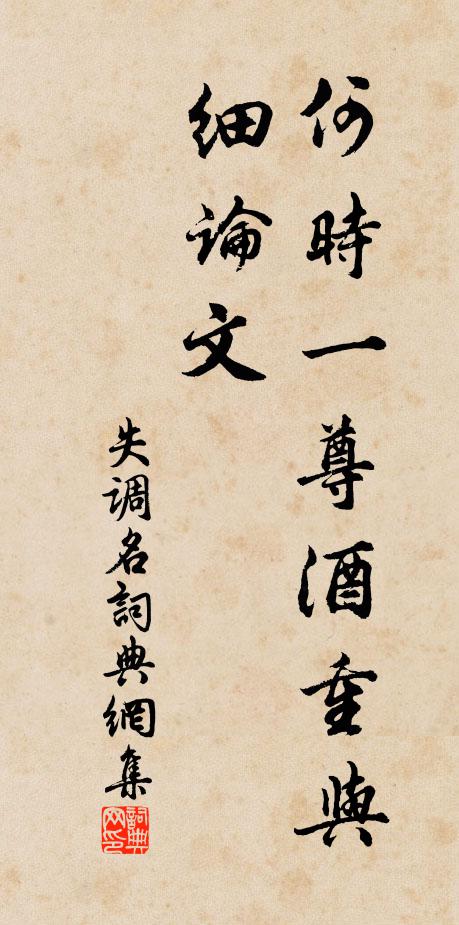 何時一尊酒重與
細論文
失調名詞典網集
詞典
网印